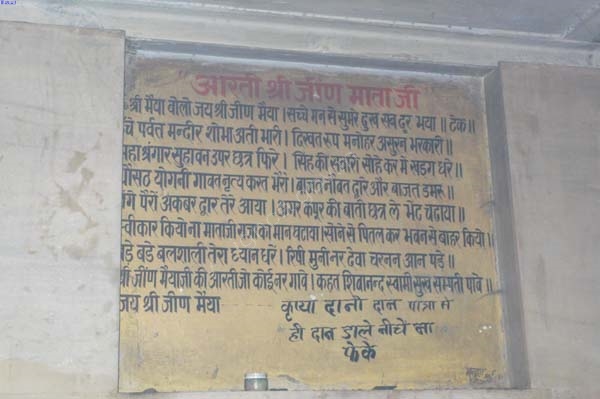 "आरती श्री जीण माता जी"
श्री मैया बोलो जय श्री जीण मैया । सच्चे मन से सुमरे दुख सब दूर भया ॥ टेक ॥
चे पर्वत मन्दीर शोभा अती भारी । दिखत रुप मनोहर असुरन भरकारी ॥
हा श्रंगार सुहावन उपर छत्र फिरे । सिंह की सवारी सोहे कर मे खडग धरे ॥
चौसठ योगनी गावत नृत्य करत भैरों । बाजत नौबत द्वारे और बाजत डमरू ॥
गे पैरों अकबर द्वार तेरे आया । अगर कपुर की बाती छत्र ले भेंट चढाया ॥
स्वीकार कियो ना माताजी राजा का मान घटाया । सोने से पितल कर भवन से बाहर कियो ॥
डे बडे बलशाली तेरा ध्यान धरे । रिषी मुनी नर देवा चरनन आन पडे ॥
श्री जीण मैयाजी की आरती जो कोई नर गावे । कहत शिवानन्द स्वामी सुख सम्पती पावे ॥
जय श्री जीण मैंया
कृप्या दानी दान पात्रा मे
ही दान डाले नीचे ना
फेके